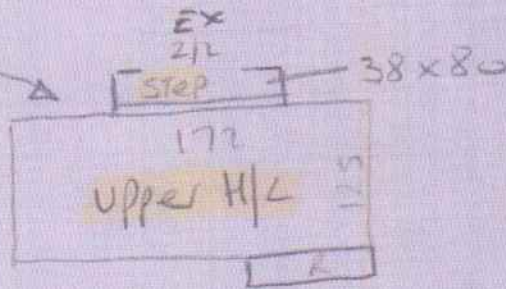 EX
2/2
STEP
38 x 80
172
Upper H/L
125